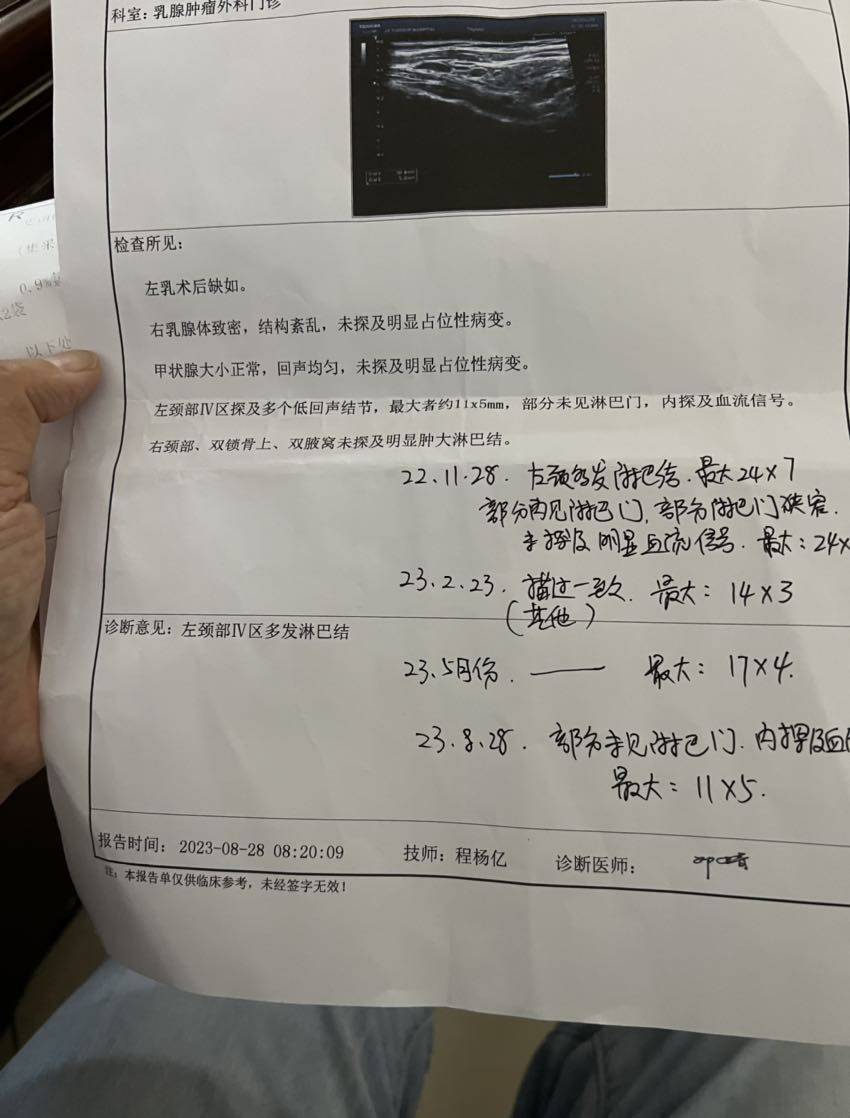 科室：乳腺肿瘤外科门诊
检查所见：
左乳术后缺如。
右乳腺体致密，结构紊乱，未探及明显占位性病变。
甲状腺大小正常，回声均匀，未探及明显占位性病变。
左颈部Ⅳ区探及多个低回声结节，最大者约11x5mm，部分未见淋巴门，内探及血流信号。
右颈部、双锁骨上、双腋窝未探及明显肿大淋巴结。
22.11.28. 左颈多发淋巴结.最大24×7
部分内见淋巴门,部分淋巴门狭窄.
未探及明显血流信号. 最大：24×
23.2.23. 描述一致. 最大：14×3
（其他）
诊断意见：左颈部Ⅳ区多发淋巴结
23.5月份. —— 最大：17×4.
23.8.28. 部分未见淋巴门.内探及血
最大：11×5.
报告时间：2023-08-28 08:20:09 技师：程杨亿 诊断医师：
注：本报告单仅供临床参考，未经签字无效！
0.9%
2袋
以下处